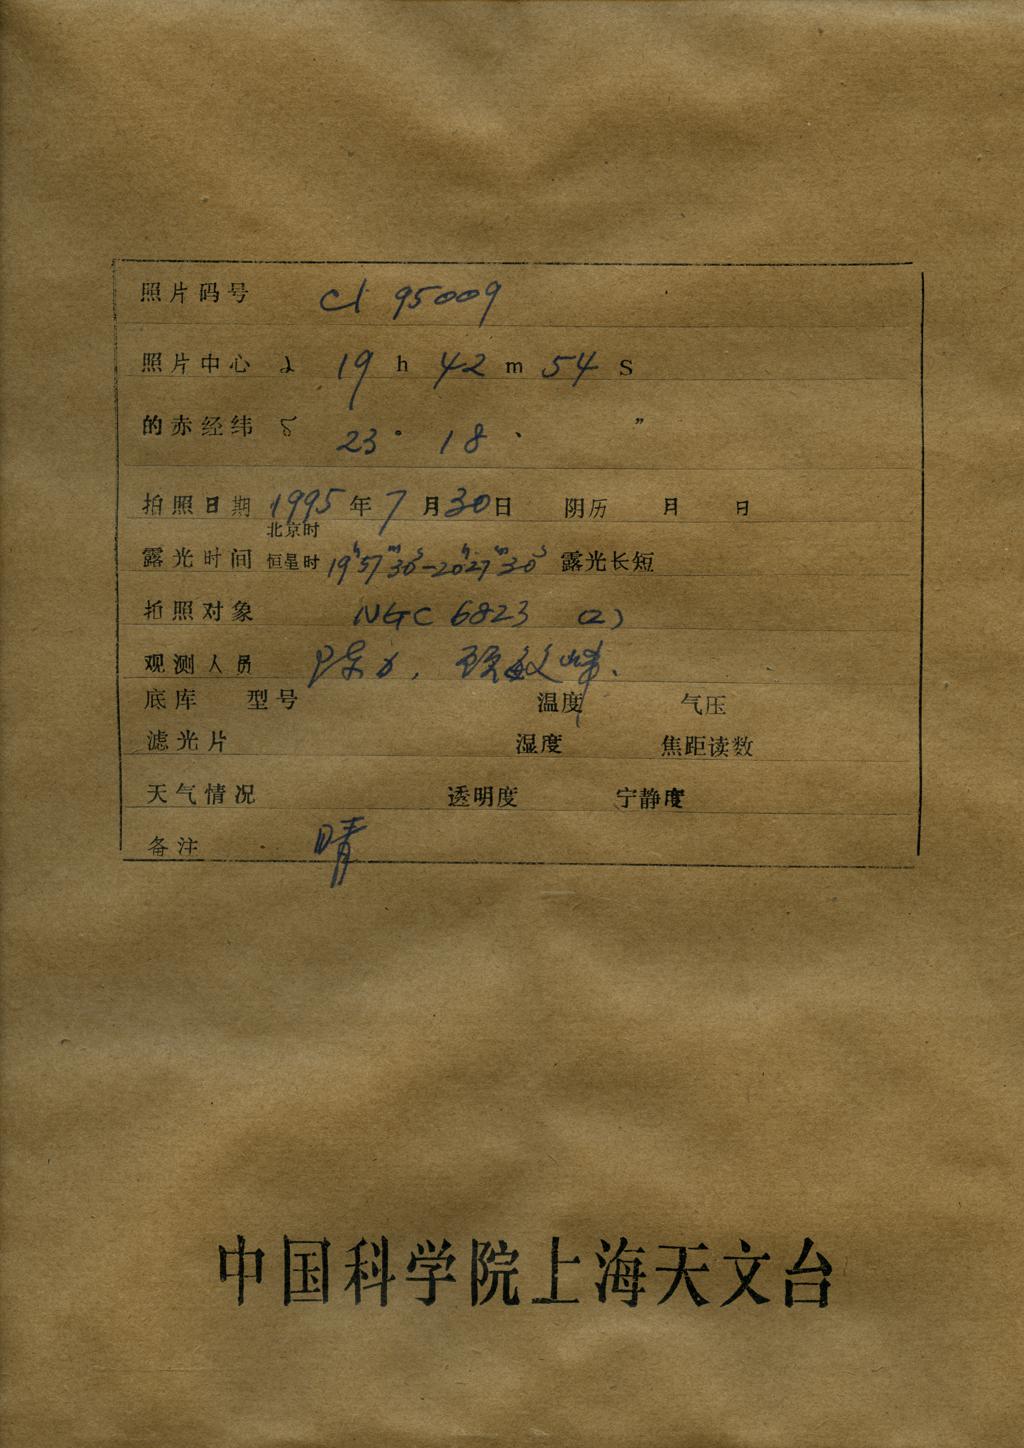 照片码号 Cl 95009
照片中心 α 19 h 42 m 54 s
的赤经纬 δ 23° 18 ′ ″
拍照日期 1995 年 7 月 30 日 阴历 月 日
北京时
露光时间 恒星时 19h57m30s-20h27m30s 露光长短
拍照对象 NGC 6823 (2)
观测人员 陈力,
底库 型号 温度 气压
滤光片 湿度 焦距读数
天气情况 透明度 宁静度
备注 晴
中国科学院上海天文台